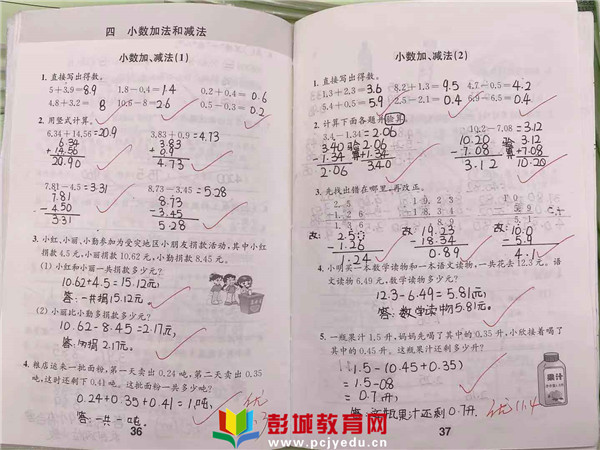 四 小数加法和减法
小数加、减法(1)
1. 直接写出得数。
5+3.9=8.9 1.8-0.4=1.4 0.2+0.4=0.6
4.8+3.2=8 10.6-8=2.6 0.5-0.3=0.2
2. 用竖式计算。
6.34+14.56=20.9 3.83+0.9=4.73
6.34 3.83
+14.56 +0.9
20.90 4.73
7.81-4.5=3.31 8.73-3.45=5.28
7.81 8.73
-4.50 -3.45
3.31 5.28
3. 小红、小丽、小勤参加为受灾地区小朋友捐款活动,其中小红
捐款4.5元,小丽捐款10.62元,小勤捐款8.45元。
(1) 小红和小丽一共捐款多少元?
10.62+4.5=15.12(元)
答:一共捐15.12元。
(2) 小丽比小勤多捐款多少元?
10.62-8.45=2.17(元)
答:多捐2.17元。
4. 粮店运来一批面粉,第一天卖出0.24吨,第二天卖出0.35
吨,这时还剩下0.41吨。这批面粉一共多少吨?
0.24+0.35+0.41=1(吨)
答:一共一吨。
优
36
小数加、减法(2)
1. 直接写出得数。
1.3+2.3=3.6 8.2+1.3=9.5 4.7-0.5=4.2
5.4+0.5=5.9 2.5-2.1=0.4 6.9-6.5=0.4
2. 计算下面各题并验算。
3.4-1.34=2.06 10.2-7.08=3.12
3.40 验 2.06 10.20 验 3.12
-1.34 算 +1.34 -7.08 算 +7.08
2.06 3.40 3.12 10.20
3. 先找出错在哪里,再改正。
2.5 19.23 10
-1.26 -18.34 -5.9
改: 2.50 改: 19.23 改: 10.0
-1.26 -18.34 -5.9
1.24 0.89 4.1
4. 小明买一本数学读物和一本语文读物,一共花去12.3元。语
文读物6.49元,数学读物多少元?
12.3-6.49=5.81(元)
答:数学读物5.81元。
5. 一瓶果汁1.5升,妈妈先喝了其中的0.35升,小欣接着喝了
其中的0.45升。这瓶果汁还剩多少升?
1.5-(0.45+0.35)
=1.5-0.8
=0.7(升)
果汁还剩0.7升。
果汁
优 11.4
37
彭城教育网
www.pcjyedu.cn